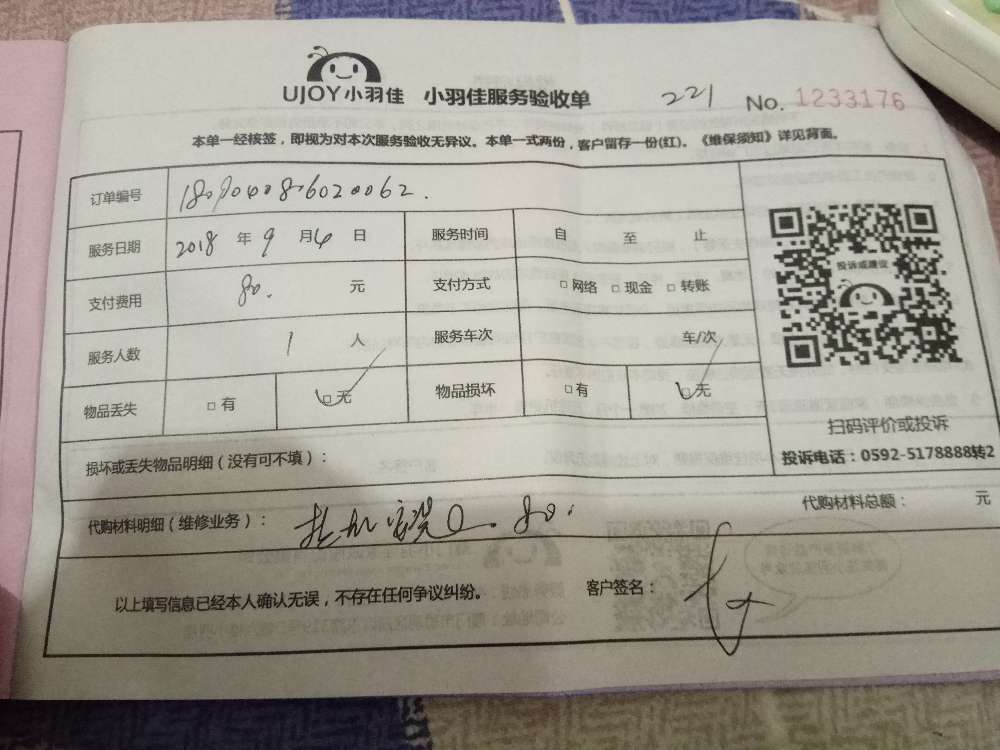 UJOY小羽佳 小羽佳服务验收单 221 No. 1233176
本单一经核签，即视为对本次服务验收无异议。本单一式两份，客户留存一份(红)。《维保须知》详见背面。
订单编号
服务日期 2018 年 9 月 6 日 服务时间 自 至 止
支付费用 80. 元 支付方式 □网络 □现金 □转账
服务人数 1 人 服务车次 车/次
物品丢失 □有 □无 物品损坏 □有 □无
投诉或建议
扫码评价或投诉
投诉电话：0592-5178888转2
损坏或丢失物品明细（没有可不填）：
代购材料明细（维修业务）： 80. 代购材料总额： 元
以上填写信息已经本人确认无误，不存在任何争议纠纷。 客户签名：